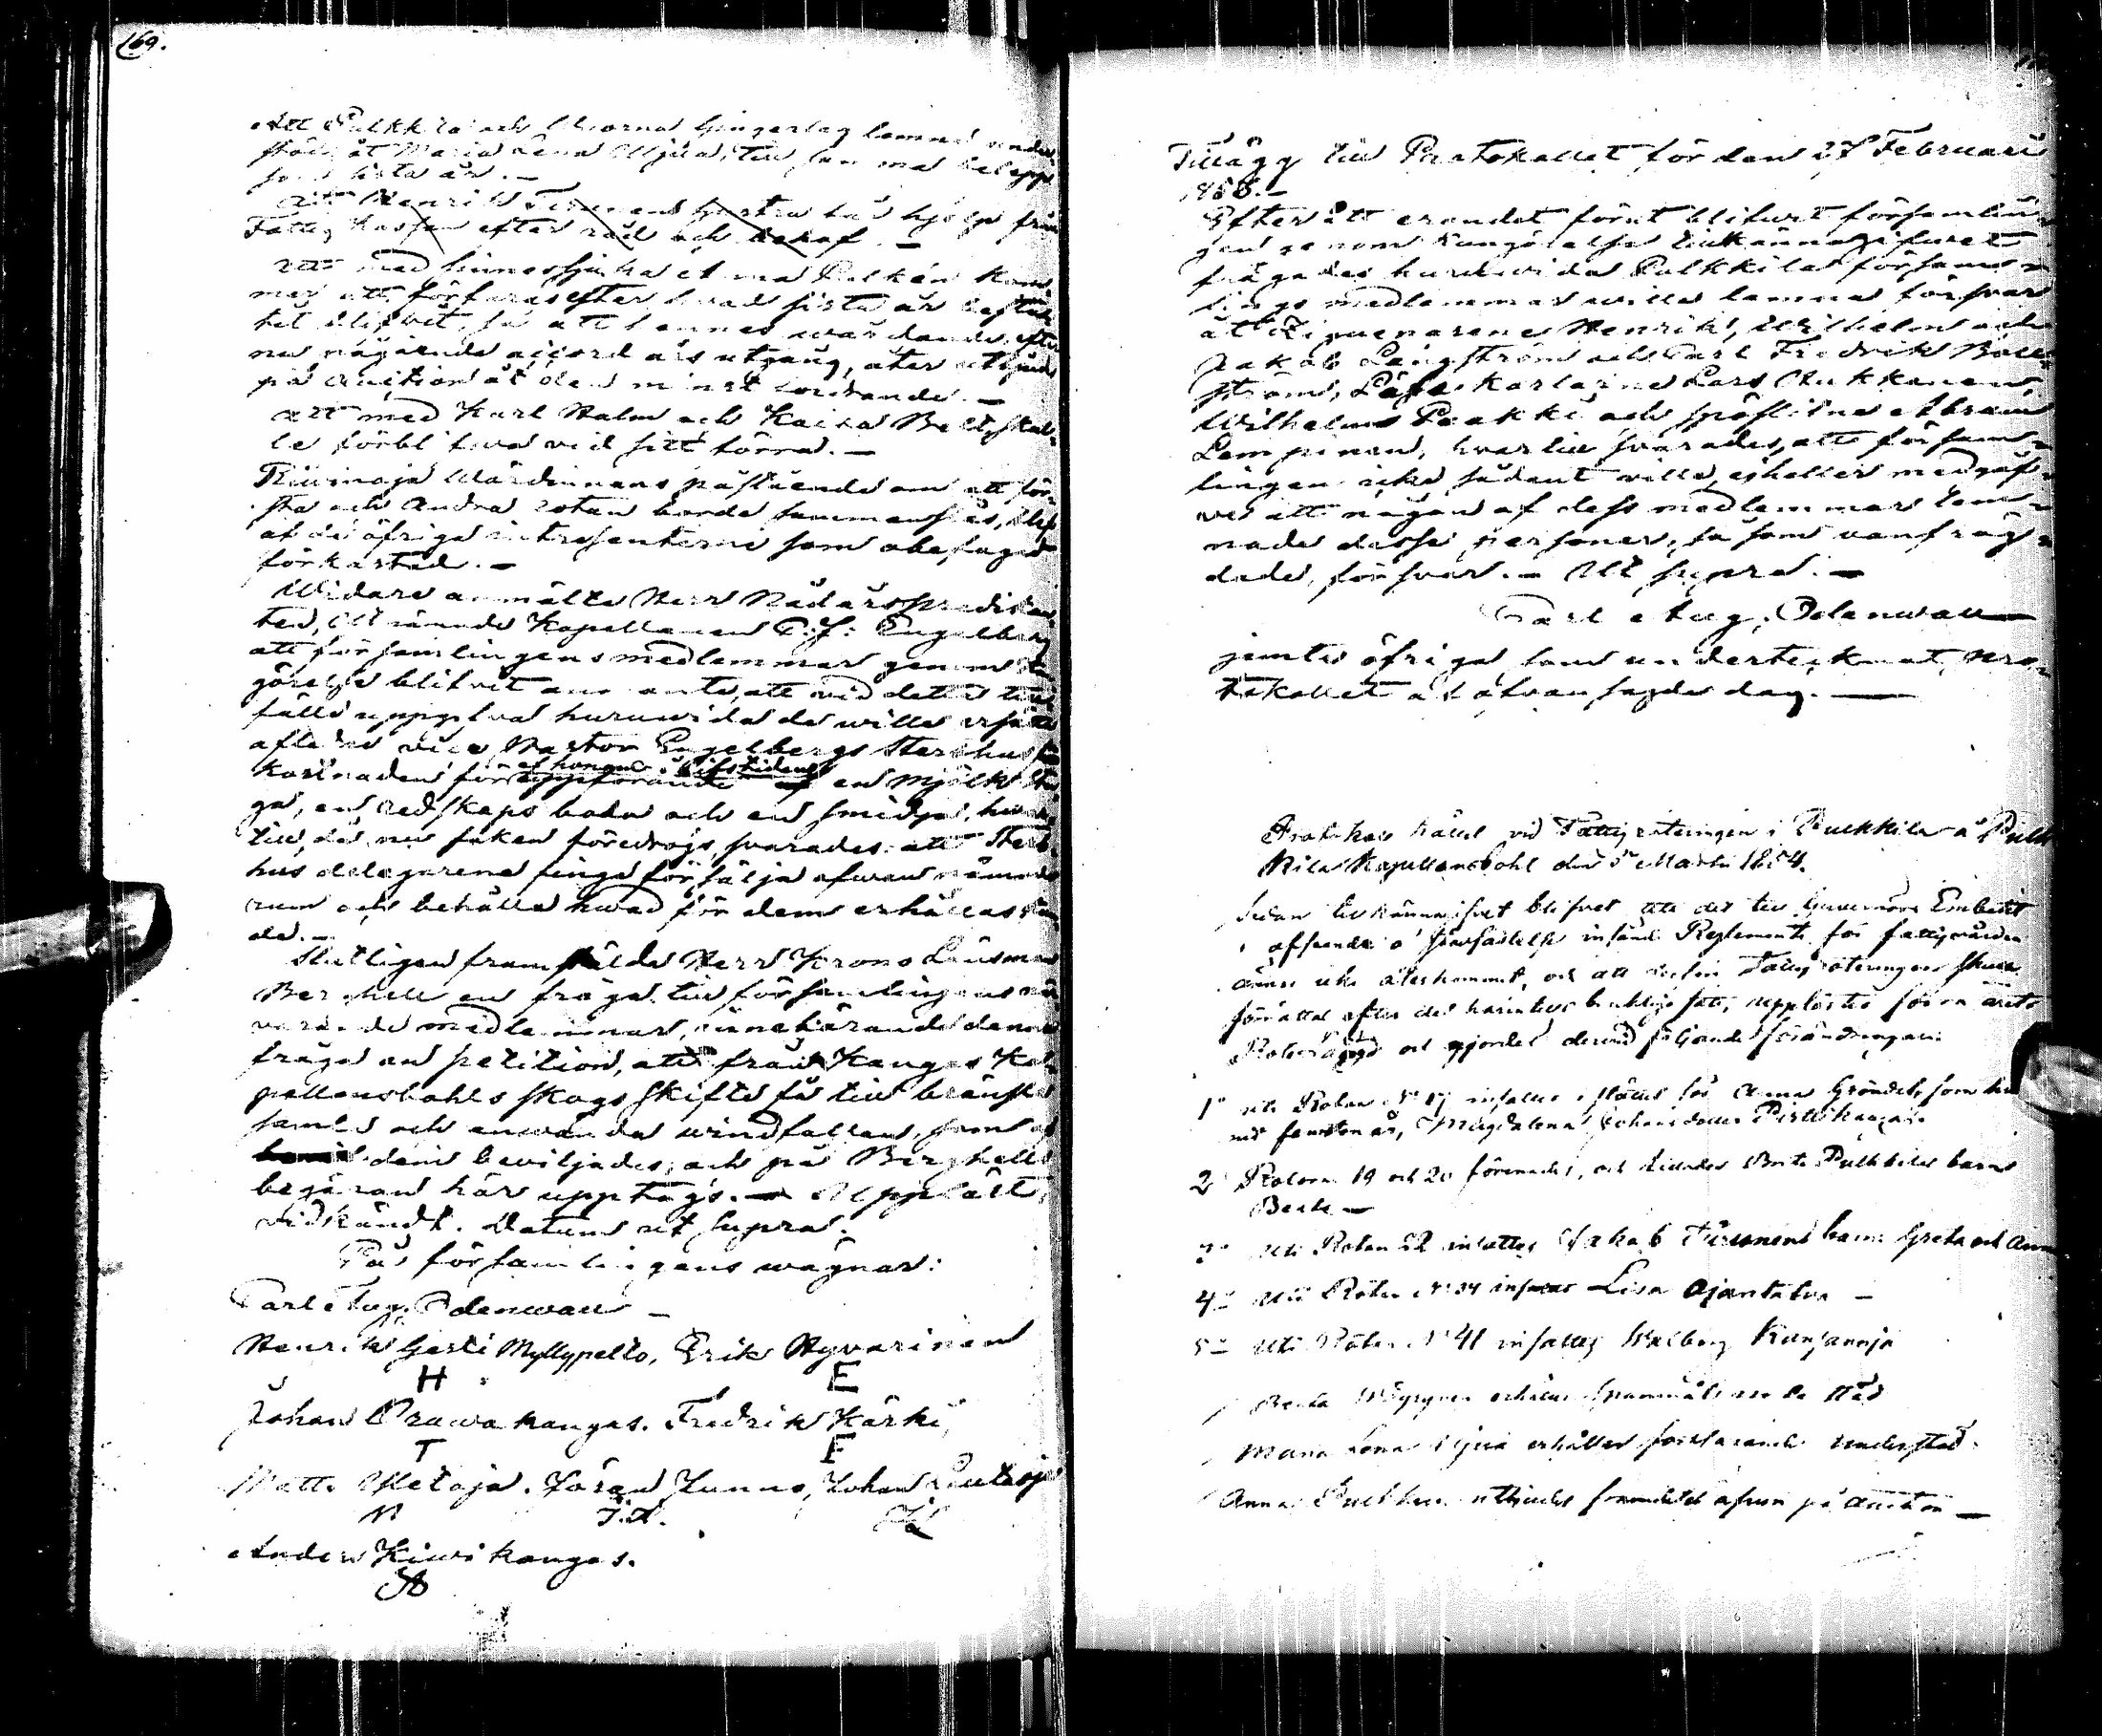 169.
Att Pulkkila och Uhorna Gingerlag lemna under-
stöd åt Maria Lena Uljua, till samma belopp
som sista år. -
att Henrik Turunens hustru får hjelp från
Fattig Kassan efter råd och behof. -
att med sinnessjuka Anna Pulkén kom-
mer att förfaras efter hvad sista år beslu-
tet blifvit, så att hennes wårdande, efter
nu någående accord års utgång, åter utbjuds
på auction åt den minst bordrande. -
att med Karl Malm och Kaisa Belt skul-
le förblifwa vid sitt förra. -
Kiwinoja Wärdinnans påstående om att för-
sta och andra rotan borde sammanslås, blef
af de öfriga intressenterne som obefogad
förkastad. -
Widare anmälte Herr Nådårspredikan-
ten, utnämnde Kapellanen C: J: Engelberg
att församlingens medlemmar genom kun-
görelse blifvit anmante, att vid detta till-
fälle uppgifva huruwida de wille ersätta
aflidne vice Pastor Engelbergs Sterbhus för
af honom i lifstiden
kostnaden för uppförande af en mjölk stu-
ga, en redskaps boda och en smidja, hvar-
till, då nu saken föredrogs, svarades: att Sterb-
hus delegarena finge försälja ofwan nämnde
rum och behålla hwad för dem erhållas kun-
de. -
Slutligen framstälde Herr Krono Länsman
Berghell en fråga till församlingens när-
varande medlemmar, innebärande denna
fråga en petition, att från Kangas Ka-
pellansbohls skogs skifte få till bränsle
samla och använda windfallen, som af
dem beviljades, och på Berghells
begäran här upptogs. - Uppläst,
vidkändt. Datum ut supra.
På församlingens wägnar:
Carl Aug. Odenwall -
Henrik Gerti Myllypelto, Erik Hyvärinen
H E
Johan Prawakangas. Fredrik Kärki,
T F
Matts Metoja. Göran Junno, Johan Lutoja
M J.A.
Anders Kiwikangas.
Tillägg till Protokollet för den 27 Februari
1858. -
Efter att erendet förut blifwit församlin-
gen genom kungörelse tillkännagifwet
frågades hurudwida Pulkkila försam-
lings medlemmar wille lemna försvar
åt Zigenarene Henrik, Wilhelm och
Jakob Långström och Carl Fredrik Boll-
ström, Löskarlarne Lars Hukkanen
Wilhelm Paakki och spöslitne Abram
Lempinen, hvartill svarades, att försam-
lingen icke sådant wille, ej heller medgåf-
ves att någon af dess medlemmar lem-
nade desse personer, såsom vanfräg-
dade, försvar. - Ut supra. -
Carl Aug. Odenwall
jemte öfriga som undertecknat pro-
tokollet å ofvansagde dag. -
Protokoll hållet vid Fattigroteringen i Pulkkila å Pulk-
kila Kapellansbohl den 5 Martii 1854.
Sedan tillkännagifvet blifvet att det till Guvernörs Embetet
i afseende å fastställelse insände Reglemente för fattigvården
ännu icke återkommit, och att derför Fattigroteringen skulle
förrättas efter det härintills brukliga sätt, upplästes förra årets
Rotelängd och gjordes dervid följande förändringar:
1° uti Rotan N° 17 insattes i stället för Anna Gröndahl, som
Magdalena Johansdotter Pirttikangas.
2° Rotorna 19 och 20 förenades, och tillades Brita Pulkkilas barn
Beata -
3° Uti Rotan 22 insattes Jakob Turunens barn Greta och Anna
4° Uti Rotan N° 34 insattes Lisa Ojantaka -
5° Uti Rotan N° 41 insattes Walborg Kanganoja
Beata erhåller
Maria Lena Uljua erhåller fortfarande understöd.
Anna Pulkkin utbjudes framdeles äfven på auction -